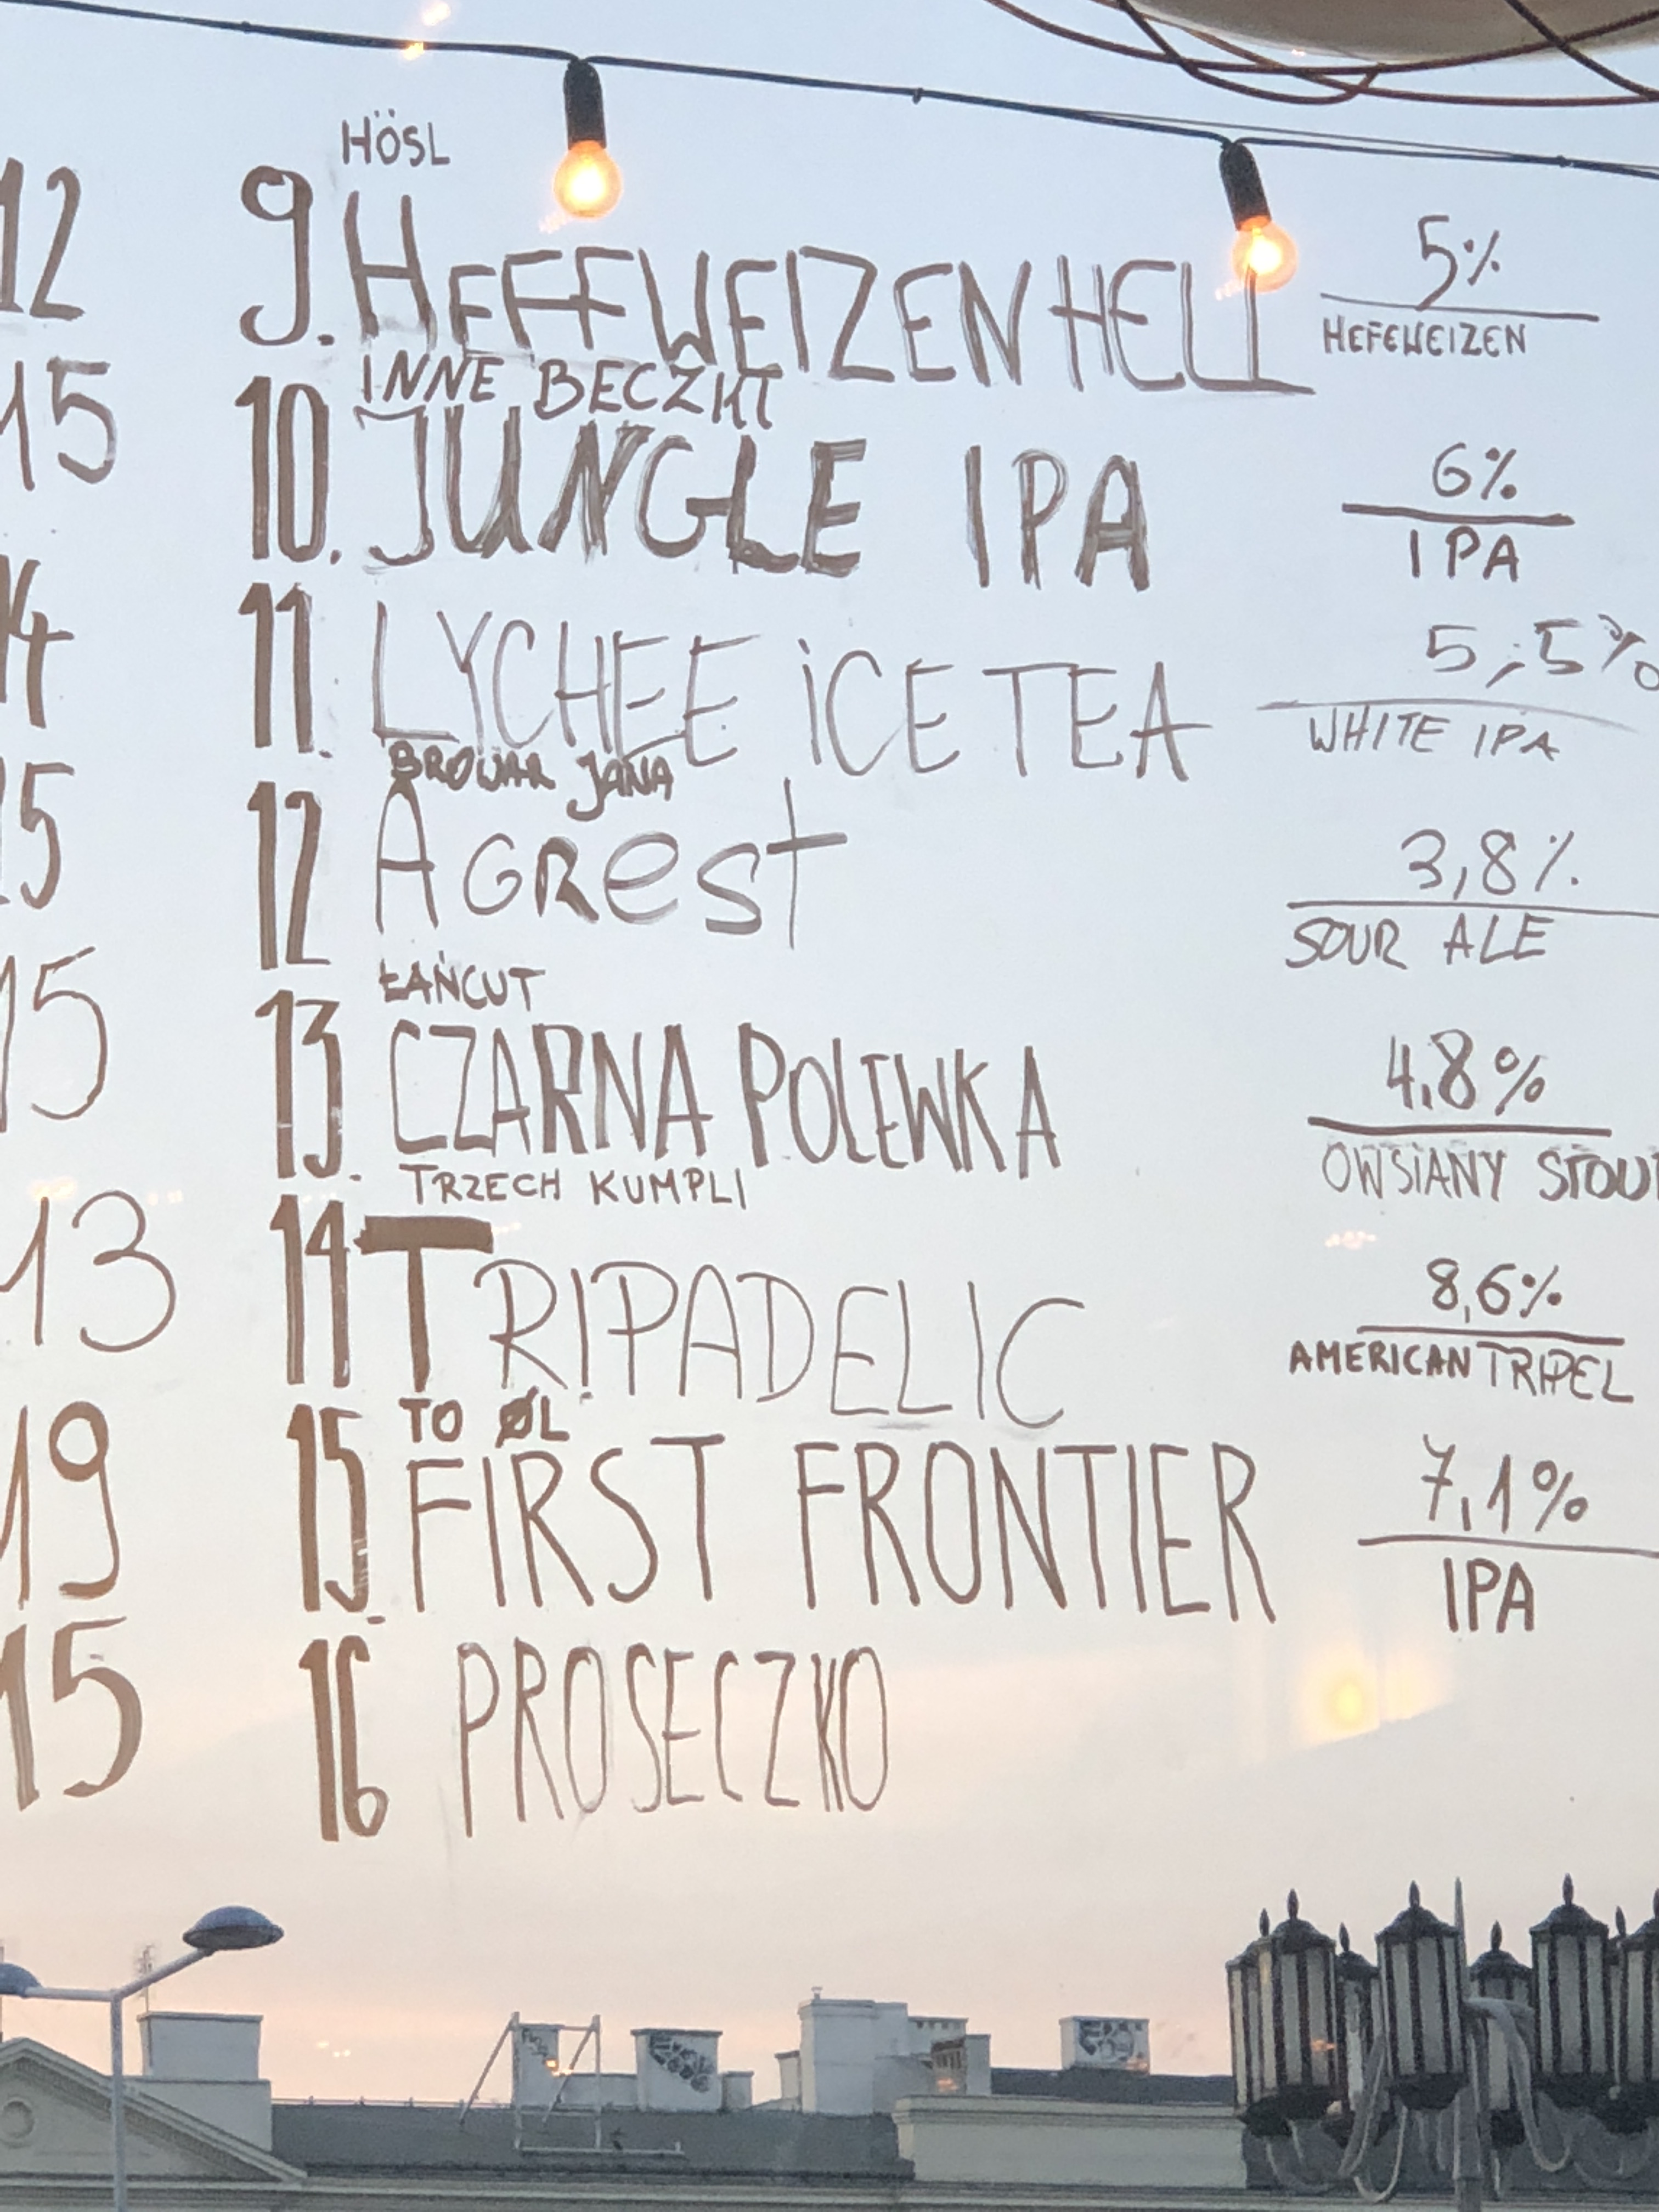 HÖSL
12 9. HEFFWEIZEN HELL 5%
HEFEWEIZEN
INNE BECZKI
15 10. JUNGLE IPA 6%
IPA
14 11. LYCHEE iCE TEA 5,5%
WHITE IPA
BROWAR JANA
15 12 AGResT 3,8%
SOUR ALE
ŁAŃCUT
15 13. CZARNA POLEWKA 4,8%
OWSIANY STOUT
TRZECH KUMPLI
13 14 TRIPADELIC 8,6%
AMERICAN TRIPEL
TO ØL
19 15. FIRST FRONTIER 7,1%
IPA
15 16 PROSECZKO